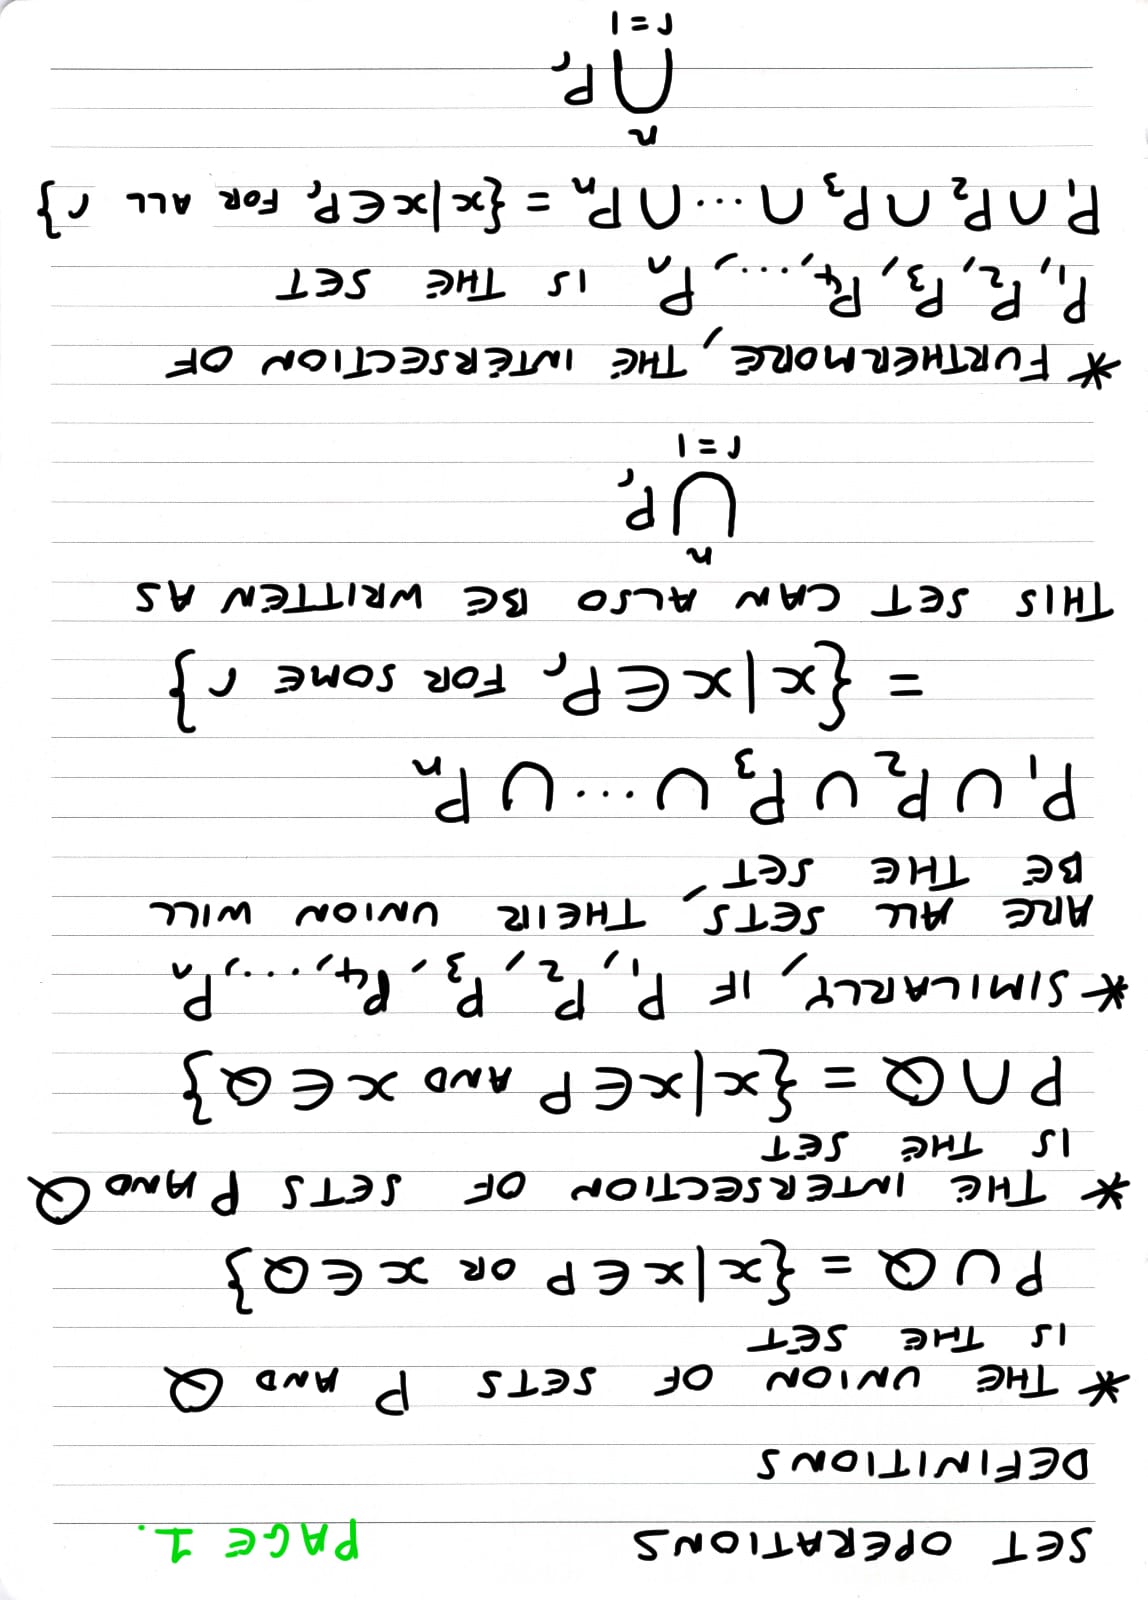 SET OPERATIONS PAGE 1.
DEFINITIONS
* THE UNION OF SETS P AND Q
IS THE SET
P ∪ Q = {x|x ∈ P OR x ∈ Q}
* THE INTERSECTION OF SETS P AND Q
IS THE SET
P ∩ Q = {x|x ∈ P AND x ∈ Q}
* SIMILARLY, IF P₁, P₂, P₃, P₄, ..., Pₙ
ARE ALL SETS, THEIR UNION WILL
BE THE SET
P₁ ∪ P₂ ∪ P₃ ∪ ··· ∪ Pₙ
= {x|x ∈ Pᵣ FOR SOME r}
THIS SET CAN ALSO BE WRITTEN AS
n
⋃ Pᵣ
r = 1
* FURTHERMORE, THE INTERSECTION OF
P₁, P₂, P₃, P₄, ..., Pₙ IS THE SET
P₁ ∩ P₂ ∩ P₃ ∩ ··· ∩ Pₙ = {x|x ∈ Pᵣ FOR ALL r}
n
⋂ Pᵣ
r = 1